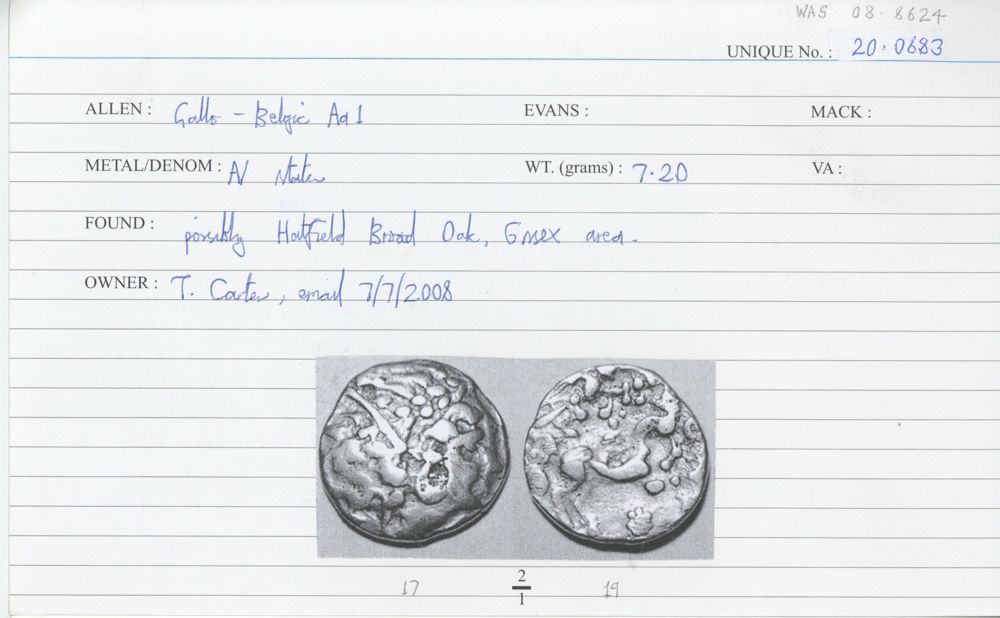 WAS 08.8624
UNIQUE No. : 20.0683
ALLEN : Gallo - Belgic Aa1 EVANS : MACK :
METAL/DENOM : AV stater WT. (grams) : 7.20 VA :
FOUND : possibly Hatfield Broad Oak, Essex area.
OWNER : T. Carter, email 7/7/2008
17 2/1 19